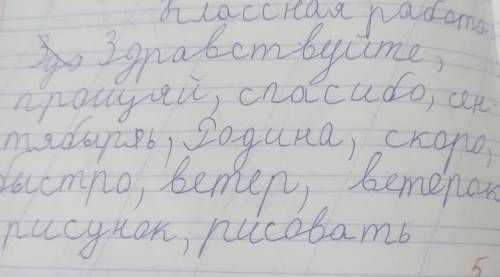 Классная работа.
Здо Здравствуйте,
прощяй, спасибо, сен
тябырь, Родина, скоро,
быстро, ветер, ветерок
рисунок, рисовать
5